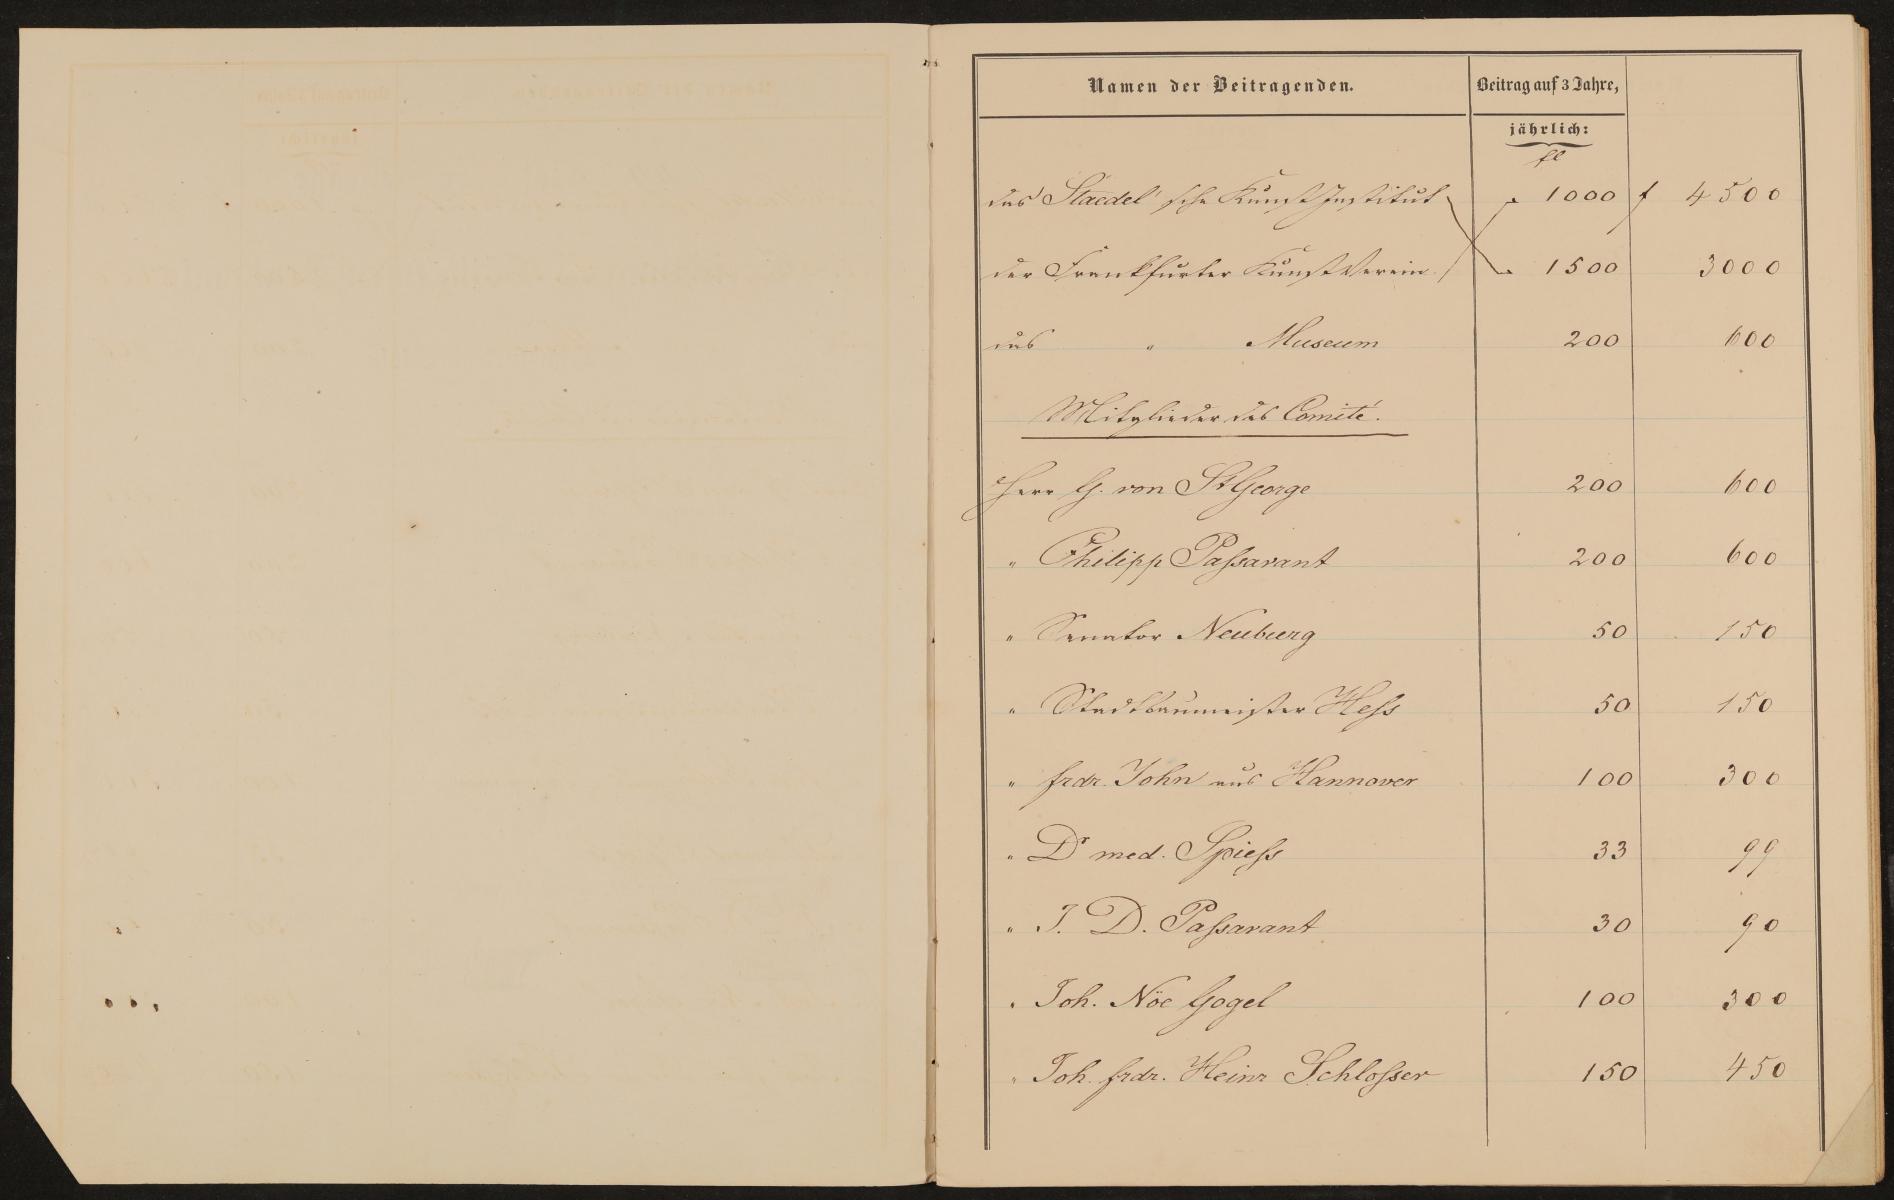 Namen der Beitragenden. Beitrag auf 3 Jahre,
jährlich:
fl
das Staedel'sche Kunst Institut 1000 f 4500
der Frankfurter Kunst Verein 1500 3000
das " Museum 200 600
Mitglieder des Comité.
Herr G. von St George 200 600
" Philipp Paſsavant 200 600
" Senator Neuburg 50 150
" Stadtbaumeister Heſs 50 150
" frdr. John aus Hannover 100 300
" Dr med. Spieſs 33 99
" J. D. Paſsavant 30 90
" Joh. Nöe Gogel 100 300
" Joh. frdr. Heinr Schloſser 150 450